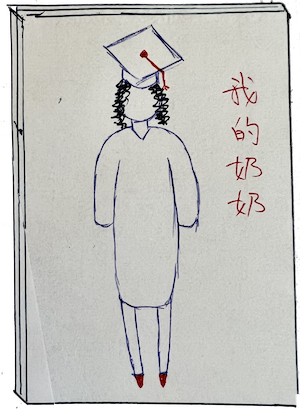 我的奶奶